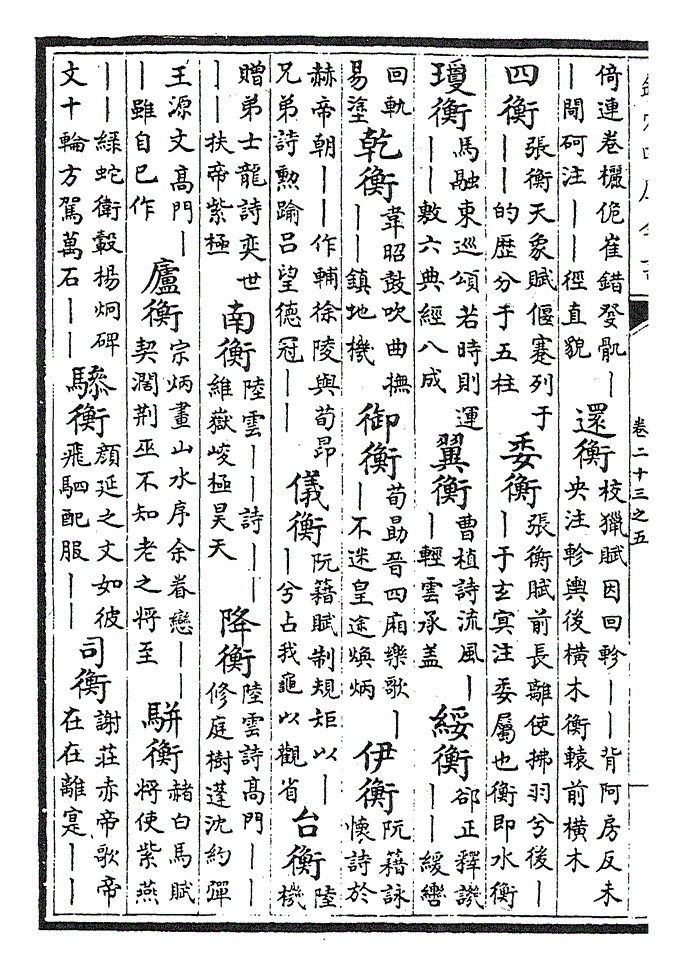 卷二十三之五
倚連卷欐佹崔錯癹骫丨丨閜砢注丨丨徑直貌 還衡 校獵賦因回軫丨丨背阿房反未央注軫輿後横木衡轅前横木
四衡 張衡天象賦偃蹇列于丨丨的歷分于五柱 委衡 張衡賦前長離使拂羽兮後丨丨于玄冥注委屬也衡即水衡
瓊衡 馬融東巡頌若時則運丨丨敷六典經八成 翼衡 曹植詩流風丨丨輕雲承蓋 綏衡 郤正釋譏丨丨緩轡
回軌易塗 乾衡 韋昭鼓吹曲撫丨丨鎮地機 御衡 荀勗晉四廂樂歌丨丨不迷皇塗煥炳 伊衡 阮籍詠懷詩於
赫帝朝丨丨作輔徐陵與荀昂兄弟詩勲踰吕望德冠丨丨 儀衡 阮籍賦制規矩以丨丨兮占我龜以觀省 台衡 陸機
贈弟士龍詩奕世丨丨扶帝紫極 南衡 陸雲丨丨詩丨丨維嶽峻極昊天 降衡 陸雲詩髙門丨丨修庭樹蓬沈約彈
王源文髙門丨丨雖自己作 廬衡 宗炳畫山水序余眷戀丨丨契濶荆巫不知老之將至 駢衡 赭白馬賦將使紫燕
丨丨緑蛇衛轂楊炯碑文十輪方駕萬石丨丨 驂衡 顔延之文如彼飛駟配服丨丨 司衡 謝莊赤帝歌帝在在離寔丨丨